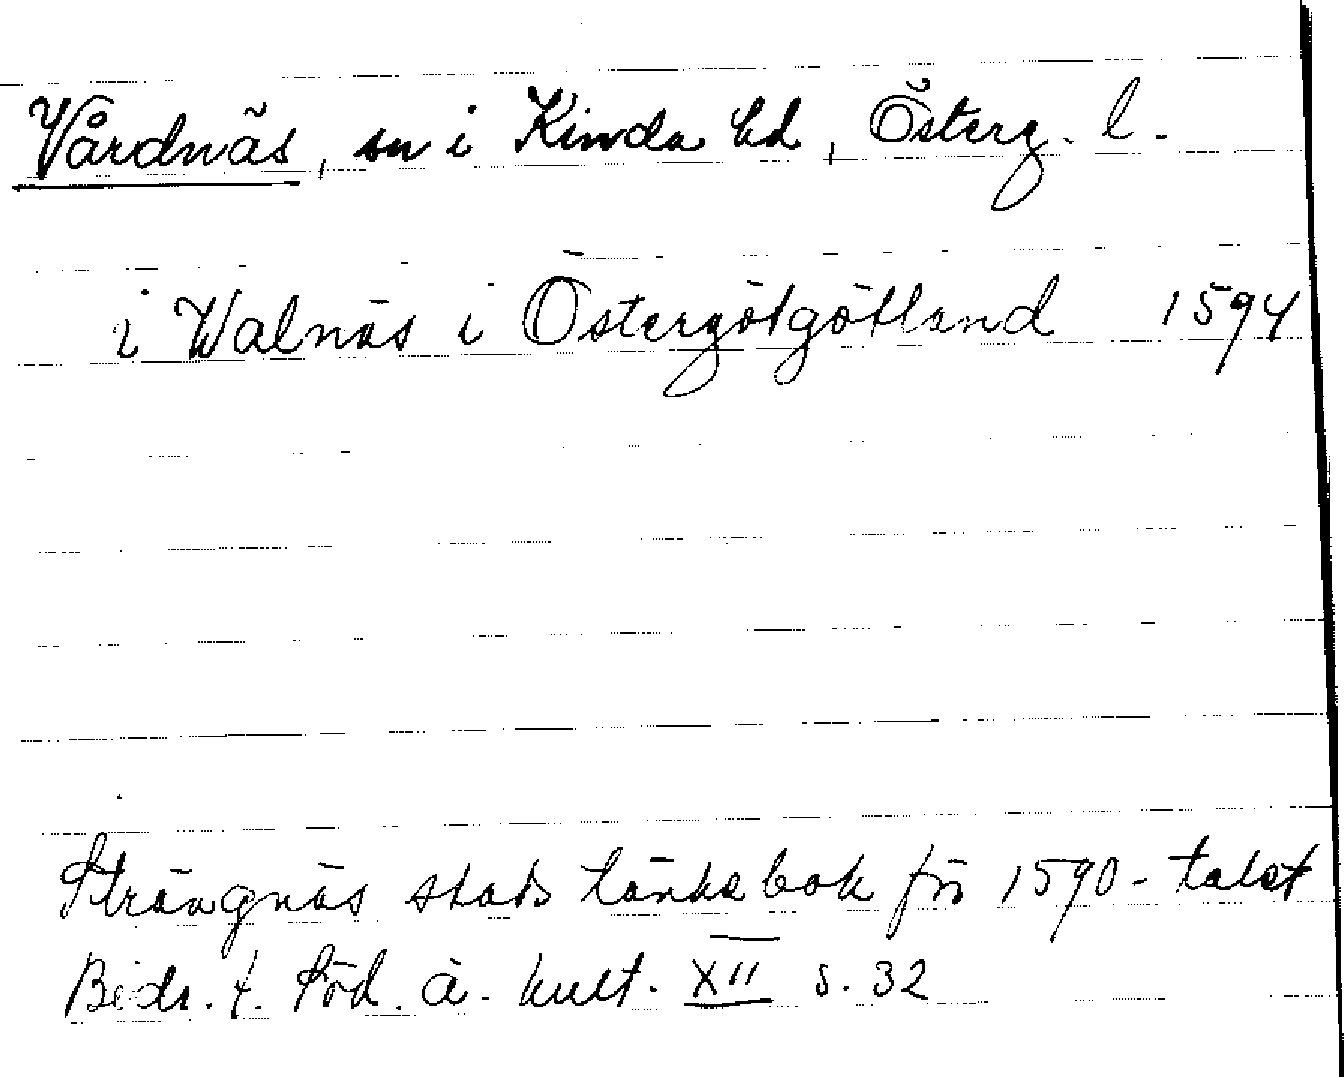 Vårdnäs, sn i Kinda hd, Österg. l.
i Walnäs i Östergötgötland 1594
Strängnäs stads tänkebok för 1590-talet
Bidr. t. Söd. ä. kult. XII s. 32